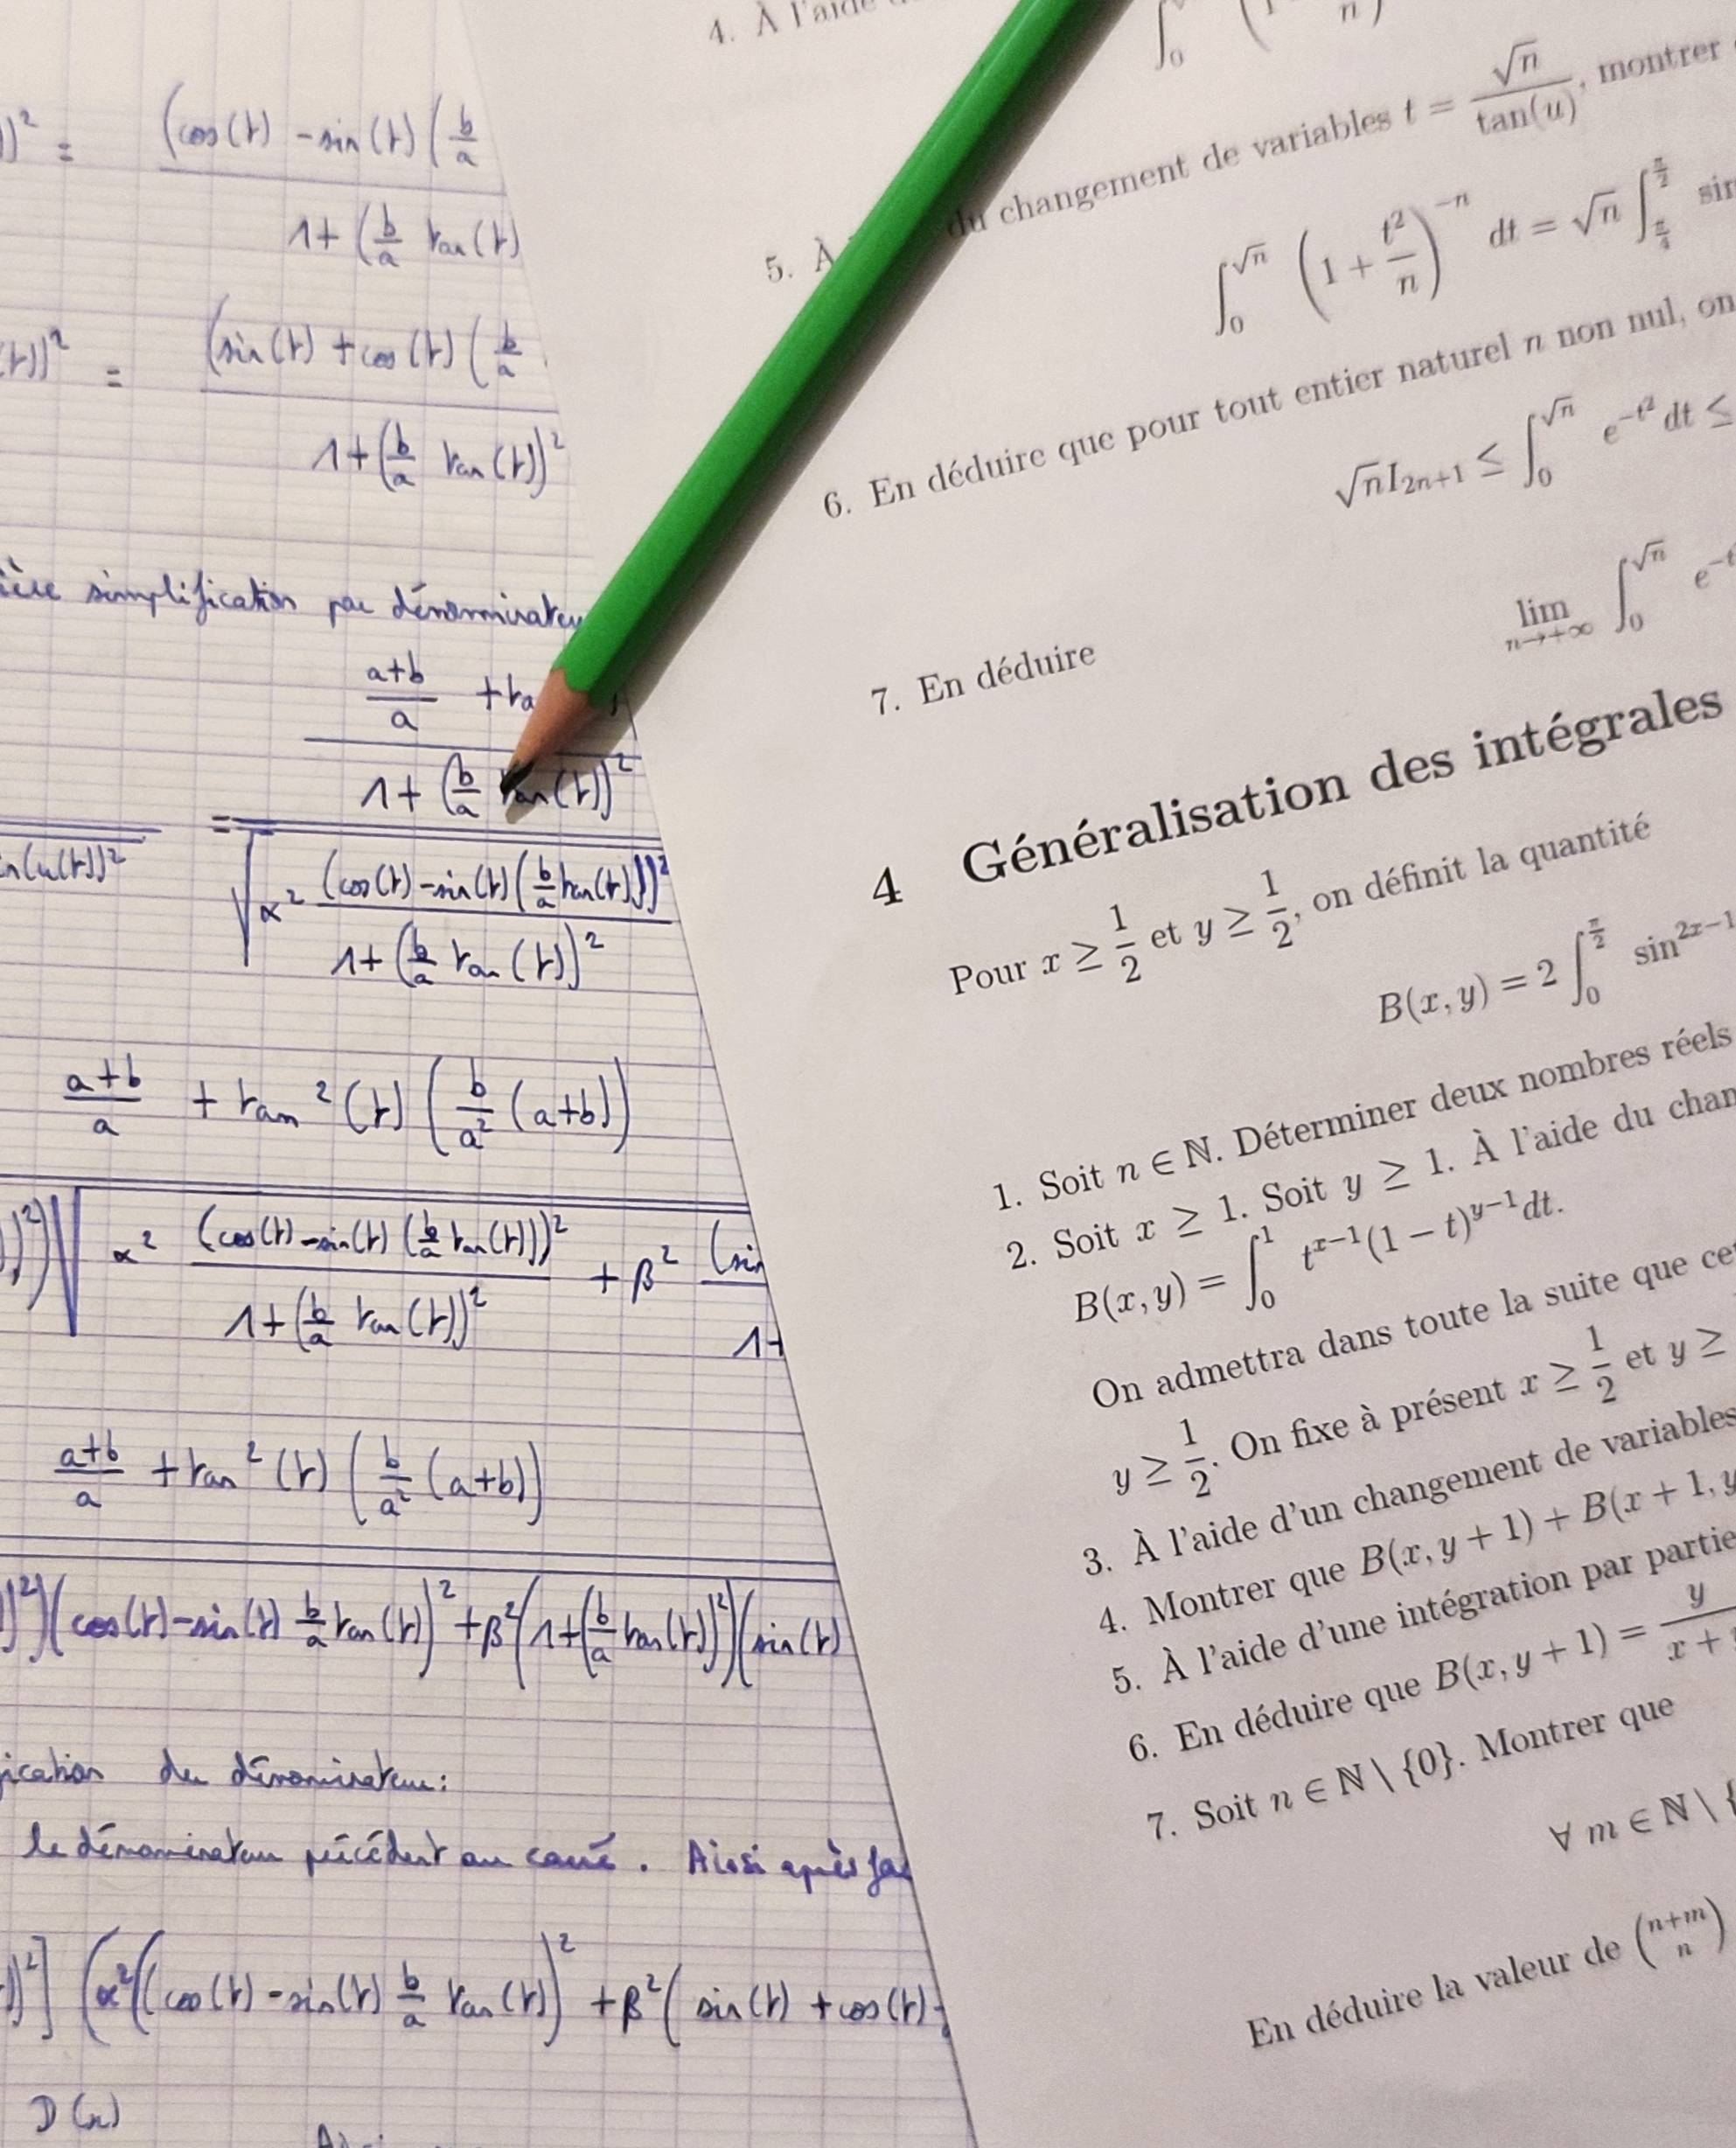 ))² = (cos(t) - sin(t) (b/a
1 + (b/a tan(t)
(t))² = (sin(t) + cos(t) (b/a
1 + (b/a tan(t))²
ière simplification par dénominateu
(a+b)/a + ta
1 + (b/a tan(t))²
in(u(t))² = √ α² (cos(t) - sin(t) (b/a tan(t)))²
1 + (b/a tan(t))²
(a+b)/a + tan²(t) (b/a² (a+b))
)²) √ α² (cos(t) - sin(t) (b/a tan(t)))² / 1 + (b/a tan(t))² + β² (sin
1+
(a+b)/a + tan²(t) (b/a² (a+b))
)²) (cos(t) - sin(t) b/a tan(t))² + β² (1 + (b/a tan(t))²) (sin(t)
ication du dénominateur:
le dénominateur précédent au carré. Ainsi après fac
)²] (α² ((cos(t) - sin(t) b/a tan(t))² + β² (sin(t) + cos(t)
D(n)
4. À l'aide
∫₀ (1 n)
5. À du changement de variables t = √n / tan(u), montrer
∫₀^√n (1 + t²/n)^−n dt = √n ∫_{π/4}^{π/2} sin
6. En déduire que pour tout entier naturel n non nul, on
√n I₂ₙ₊₁ ≤ ∫₀^√n e^−t² dt ≤
7. En déduire
lim n→+∞ ∫₀^√n e^−t
4 Généralisation des intégrales
Pour x ≥ 1/2 et y ≥ 1/2, on définit la quantité
B(x, y) = 2 ∫₀^{π/2} sin^{2x−1}
1. Soit n ∈ ℕ. Déterminer deux nombres réels
2. Soit x ≥ 1. Soit y ≥ 1. À l'aide du chan
B(x, y) = ∫₀¹ t^{x−1}(1 − t)^{y−1}dt.
On admettra dans toute la suite que cet
y ≥ 1/2. On fixe à présent x ≥ 1/2 et y ≥
3. À l'aide d'un changement de variables
4. Montrer que B(x, y + 1) + B(x + 1, y
5. À l'aide d'une intégration par partie
6. En déduire que B(x, y + 1) = y / x +
7. Soit n ∈ ℕ \ {0}. Montrer que
∀ m ∈ ℕ \ {
En déduire la valeur de (n+m n)